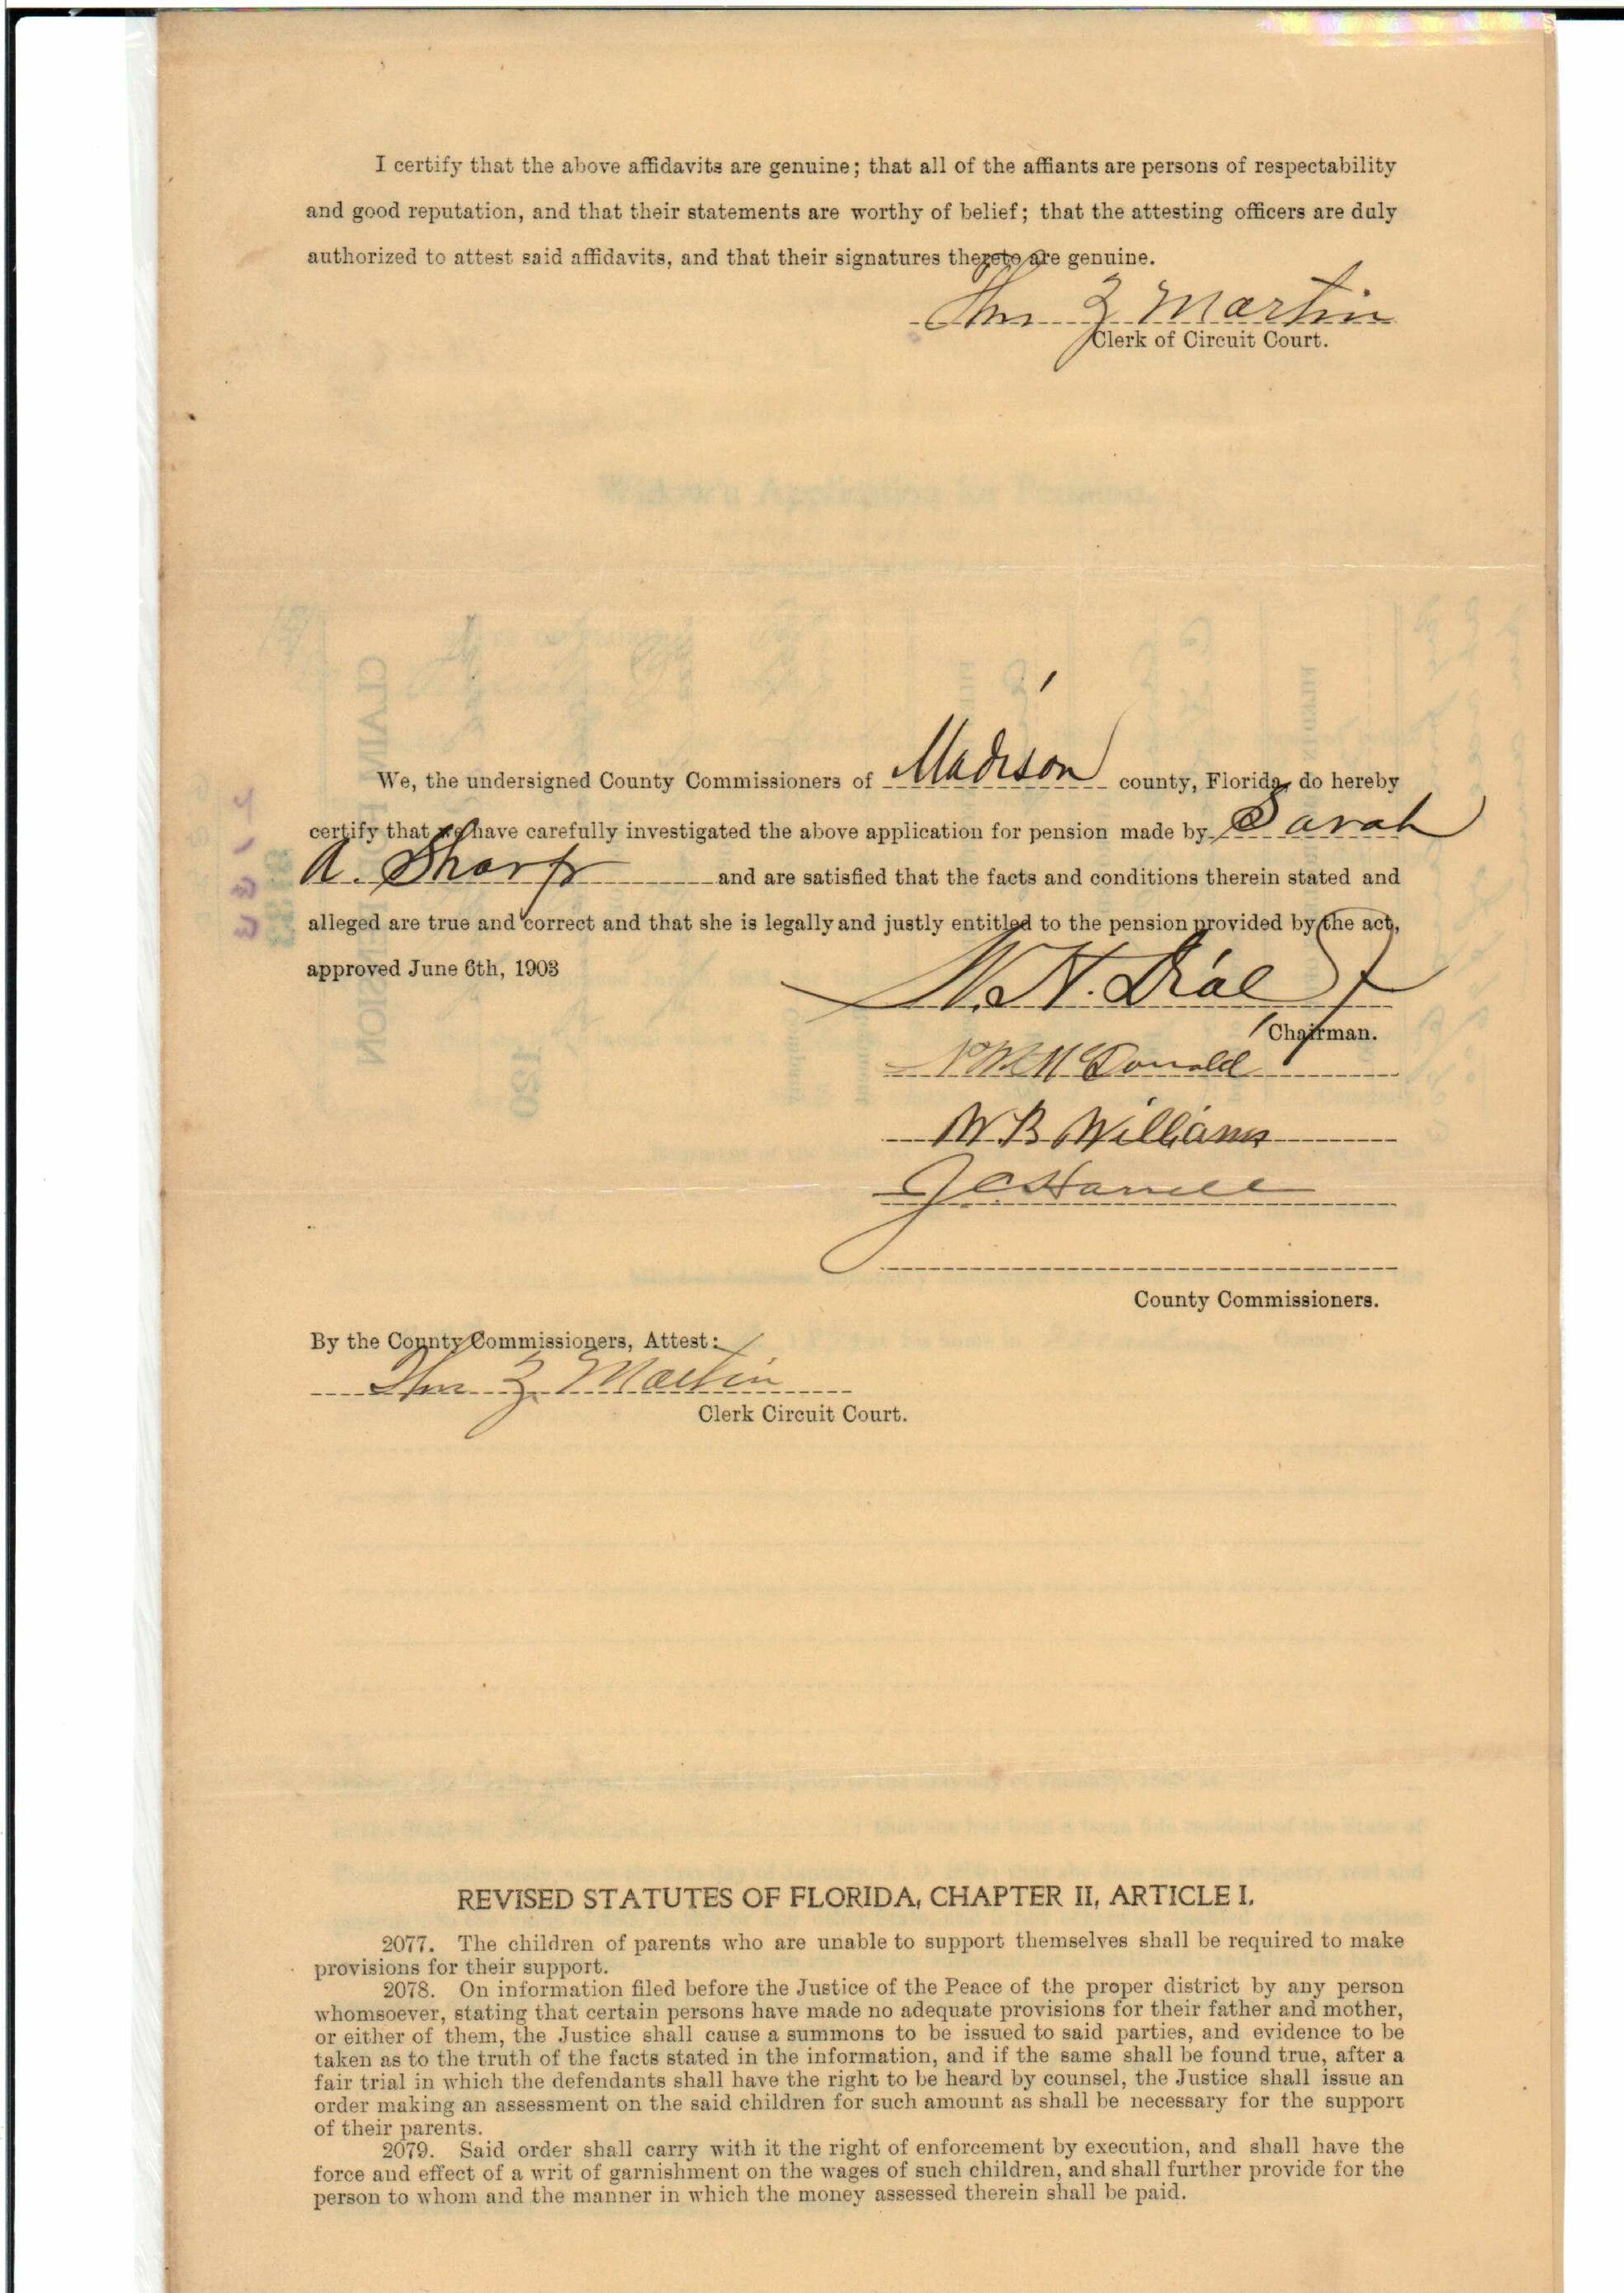 I certify that the above affidavits are genuine; that all of the affiants are persons of respectability
and good reputation, and that their statements are worthy of belief; that the attesting officers are duly
authorized to attest said affidavits, and that their signatures thereto are genuine.
Thm Z Martin
Clerk of Circuit Court.
We, the undersigned County Commissioners of Madison county, Florida, do hereby
certify that we have carefully investigated the above application for pension made by Sarah
A. Sharp and are satisfied that the facts and conditions therein stated and
alleged are true and correct and that she is legally and justly entitled to the pension provided by the act,
approved June 6th, 1903
Dial
Chairman.
McDonald
W B Williams
J C Harrell
County Commissioners.
By the County Commissioners, Attest:
Thm Z Martin
Clerk Circuit Court.
REVISED STATUTES OF FLORIDA, CHAPTER II, ARTICLE I.
2077. The children of parents who are unable to support themselves shall be required to make
provisions for their support.
2078. On information filed before the Justice of the Peace of the proper district by any person
whomsoever, stating that certain persons have made no adequate provisions for their father and mother,
or either of them, the Justice shall cause a summons to be issued to said parties, and evidence to be
taken as to the truth of the facts stated in the information, and if the same shall be found true, after a
fair trial in which the defendants shall have the right to be heard by counsel, the Justice shall issue an
order making an assessment on the said children for such amount as shall be necessary for the support
of their parents.
2079. Said order shall carry with it the right of enforcement by execution, and shall have the
force and effect of a writ of garnishment on the wages of such children, and shall further provide for the
person to whom and the manner in which the money assessed therein shall be paid.